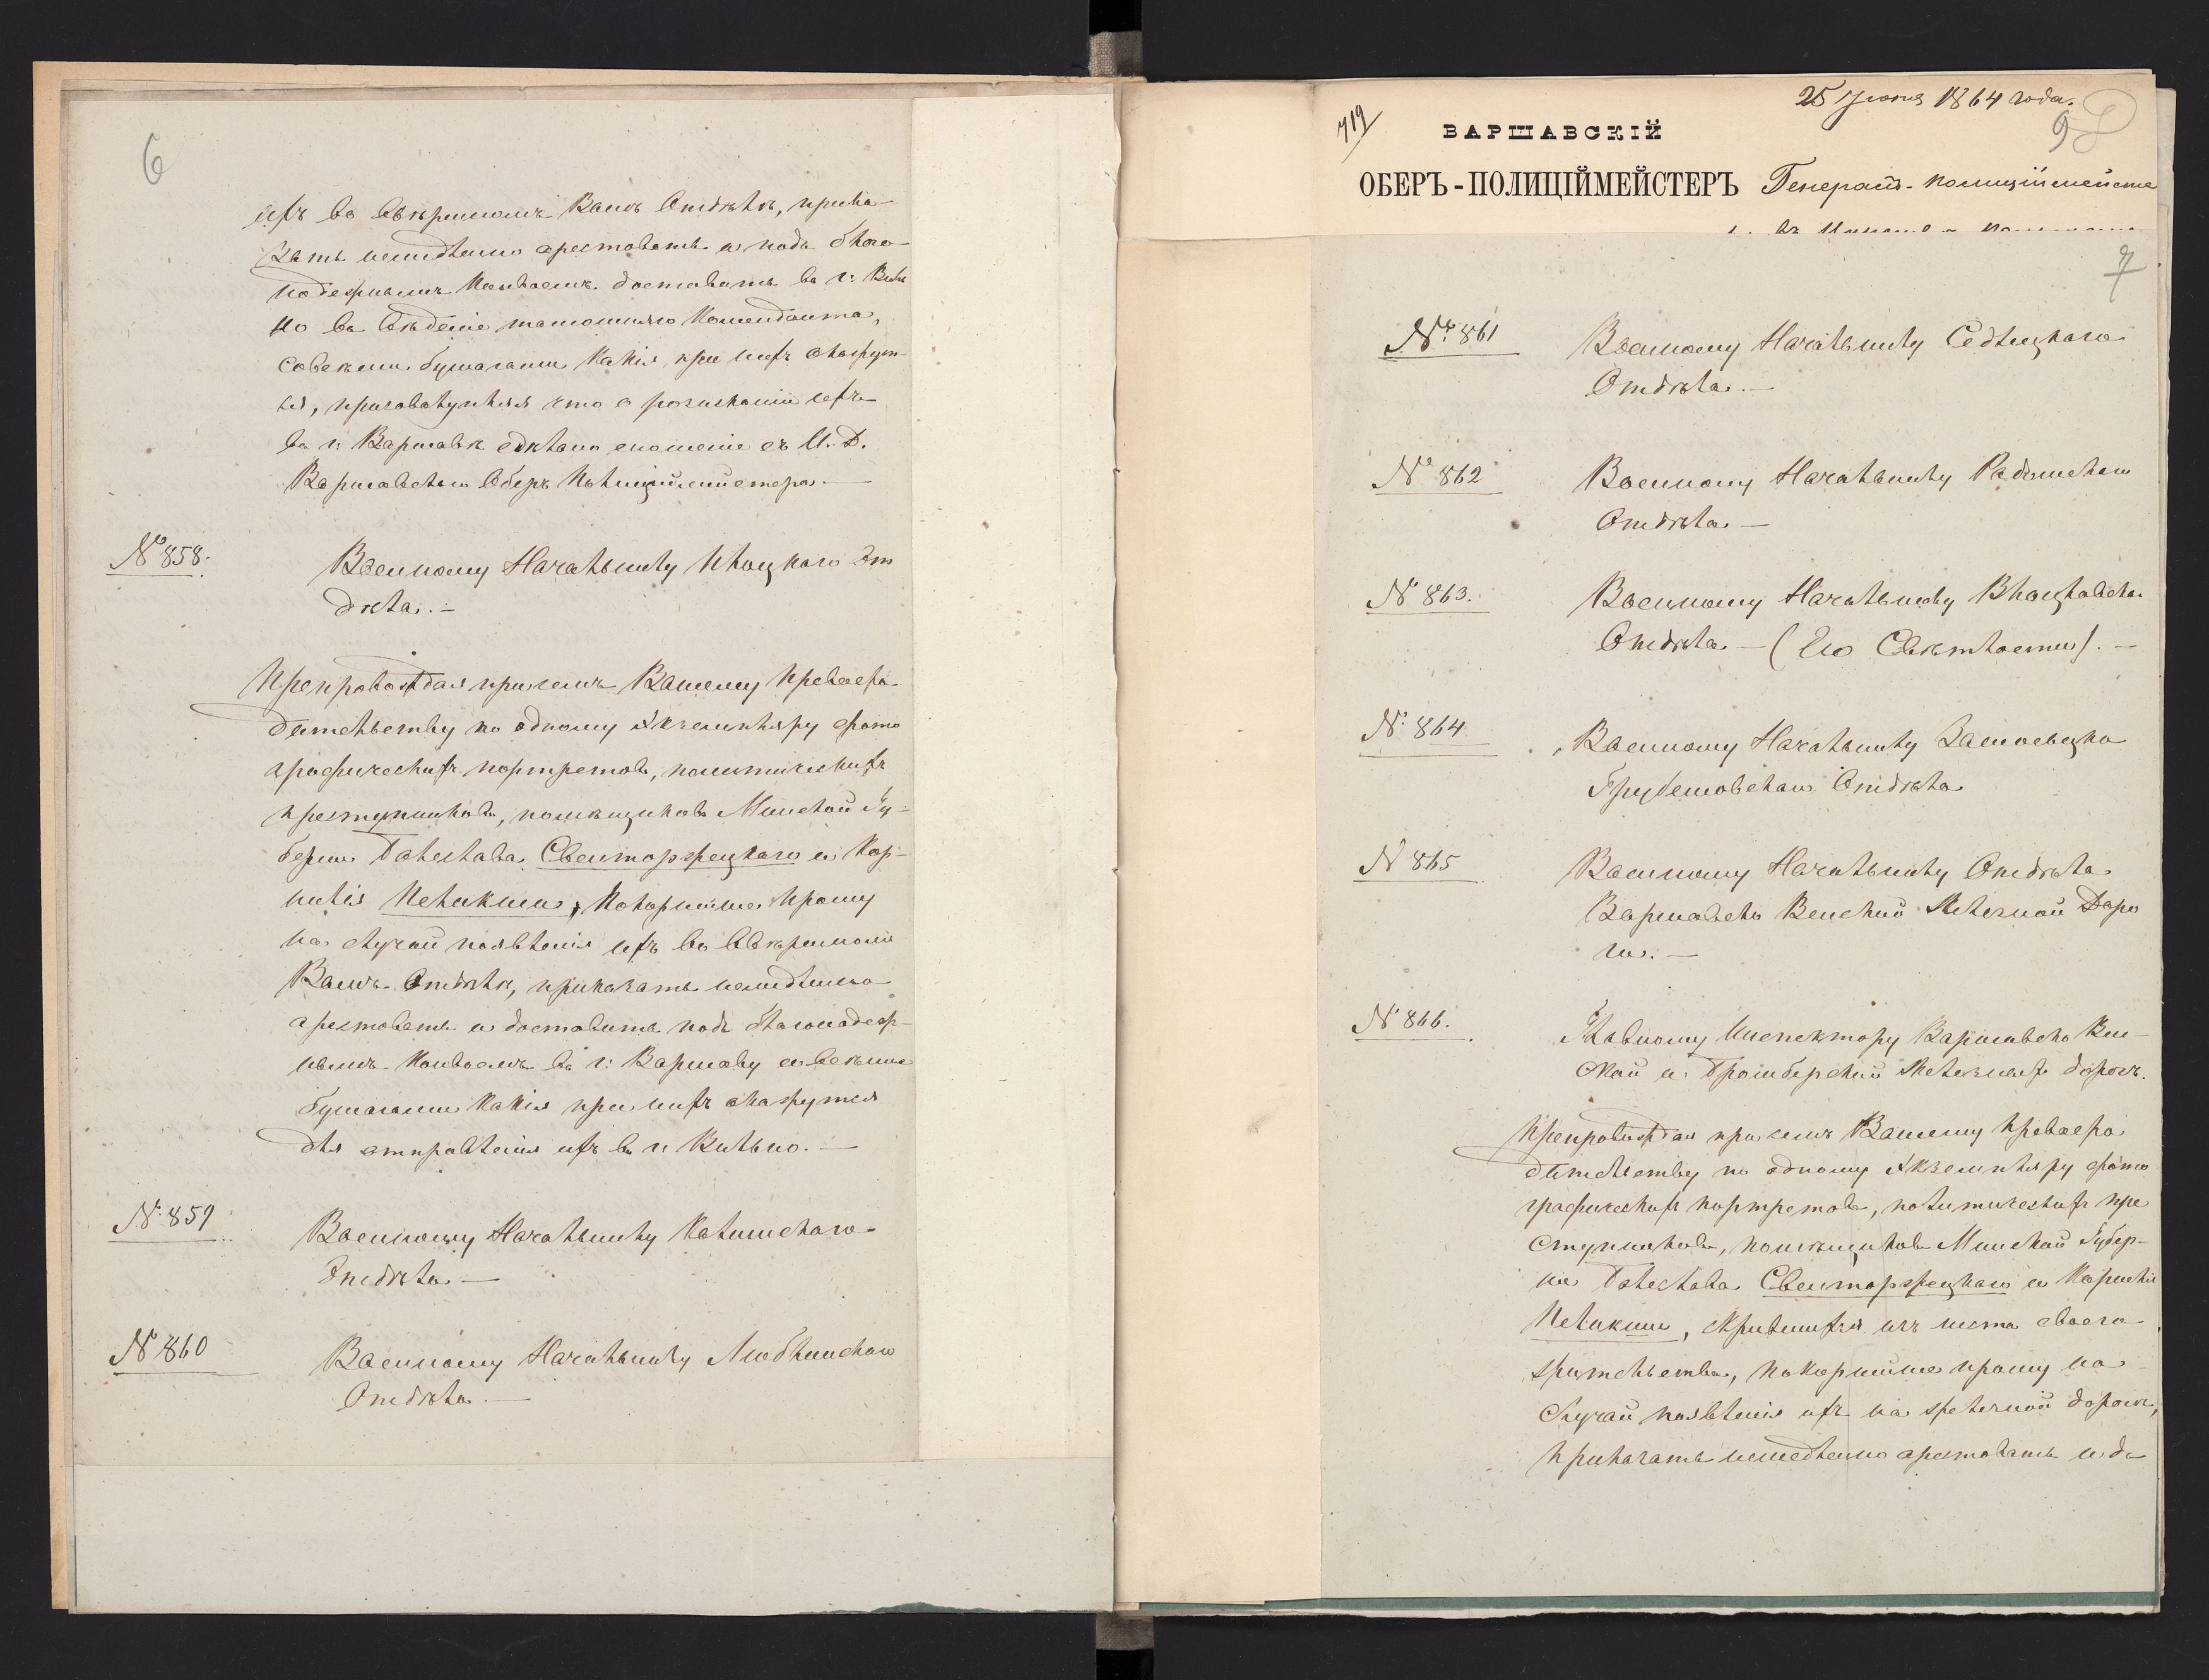 6
ихъ во ввѣренномъ Вамъ Отдѣлѣ, прика-
зать немедленно арестовать и подъ благо-
надежнымъ Конвоемъ доставить въ г. Виль
но въ вѣдѣніе тамошняго Коменданта,
со всѣми бумагами какія при нихъ окажут-
ся, присовокупляя что о розысканіи ихъ
въ г. Варшавѣ сдѣлано сношеніе съ И. Д.
Варшавскаго Оберъ Полиціймейстера. —
№ 858.
Военному Начальнику Плоцкаго От
дѣла. —
Препровождая при семъ Вашему Превосхо-
дительству по одному экземпляру фото
графическихъ портретовъ, политическихъ
преступниковъ, помѣщиковъ Минской Гу-
берніи Болеслава Свенторжецкаго и Кор-
нилія Пеликши, Покорнѣйше прошу
на случай появленія ихъ во ввѣренномъ
Вамъ Отдѣлѣ, приказать немедленно
арестовать и доставить подъ благонадеж-
нымъ Конвоемъ въ г. Варшаву со всѣми
бумагами какія при нихъ окажутся
для отправленія ихъ въ г. Вильно. —
№ 859
Военному Начальнику Калишскаго
Отдѣла —
№ 860
Военному Начальнику Люблинскаго
Отдѣла. —
25 Іюня 1864 года.
719
9
ВАРШАВСКІЙ
ОБЕРЪ-ПОЛИЦІЙМЕЙСТЕРЪ Генералъ-полиціймейсте
7
№ 861
Военному Начальнику Седлецкаго
Отдѣла. —
№ 862
Военному Начальнику Радомскаго
Отдѣла —
№ 863.
Военному Начальнику Влоцлавска
Отдѣла — (Его Свѣтлости). —
№ 864
Военному Начальнику Замосцько
Грубешовскаго Отдѣла
№ 865
Военному Начальнику Отдѣла
Варшавско Венской Желѣзной Доро
ги. —
№ 866.
Главному Инспектору Варшавско Вен-
ской и Бромбергской Желѣзныхъ дорогъ.
Препровождая при семъ Вашему Превосхо
дительству по одному экземпляру фото
графическихъ портретовъ, политическихъ пре
ступниковъ, помѣщиковъ Минской Губер-
ніи Болеслава Свенторжецкаго и Корнилія
Пеликши, скрывшихся изъ мѣста своего
жительства, покорнѣйше прошу на
случай появленія ихъ на желѣзной дорогѣ,
приказать немедленно арестовать и до